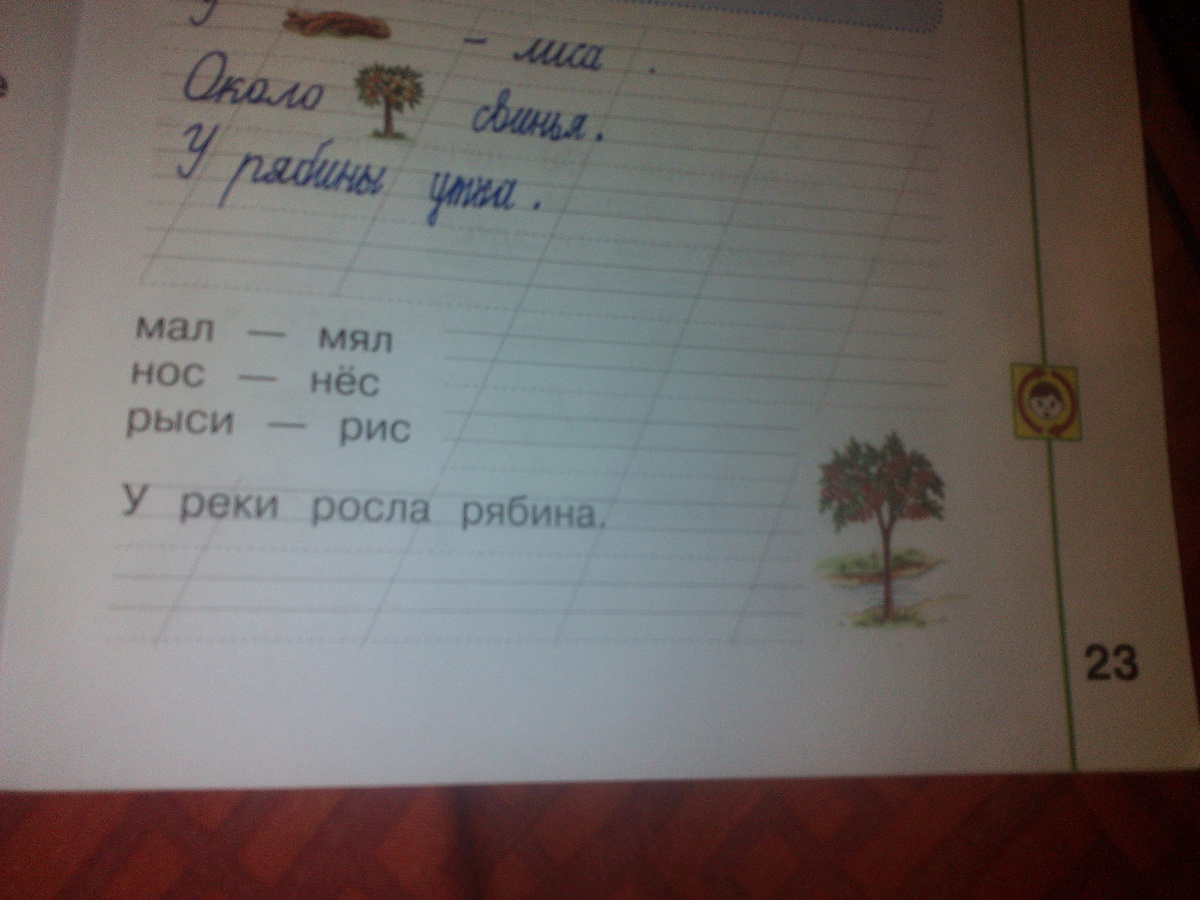 У
– лиса .
Около свинья.
У рябины утка.
мал — мял
нос — нёс
рыси — рис
У реки росла рябина.
23